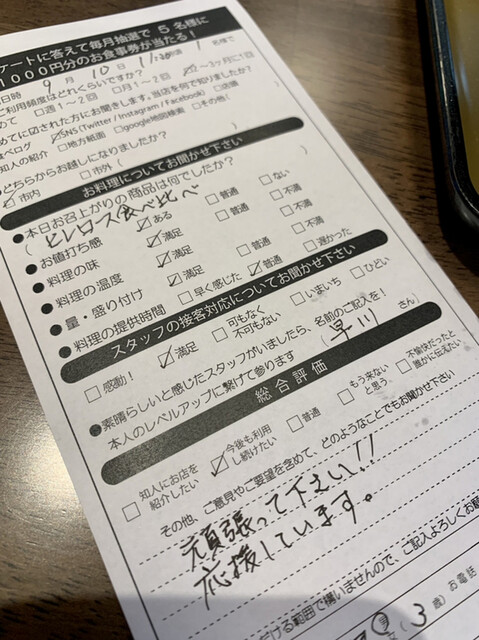 ケートに答えて毎月抽選で 5 名様に
1000円分のお食事券が当たる！
日時 9月10日 1名様で
ご利用頻度はどれくらいですか？
めて □週1〜2回 □月1〜2回 ☑2〜3ヶ月に1回
めてに図された方にお聞きします。当店を何で知りましたか？
食べログ ☑SNS(Twitter / Instagram / Facebook) □店頭
知人の紹介 □地方紙面 □google地図検索 □その他(
どちらからお越しになりましたか？
☑市内 □市外( )
お料理についてお聞かせ下さい
●本日お召上がりの商品は何でしたか？
(ヒレロース食べ比べ
●お値打ち感 ☑ある □普通 □ない
●料理の味 ☑満足 □普通 □不満
●料理の温度 ☑満足 □普通 □不満
●量・盛り付け ☑満足 □普通 □不満
●料理の提供時間 □早く感じた ☑普通 □遅かった
スタッフの接客対応についてお聞かせ下さい
□感動！ ☑満足 □可もなく不可もない □いまいち □ひどい
●素晴らしいと感じたスタッフがいましたら、名前のご記入を！
本人のレベルアップに繋げて参ります (早川 さん)
総合評価
□知人にお店を紹介したい ☑今後も利用し続けたい □普通 □もう来ないと思う □不愉快だったと誰かに伝えたい
その他、ご意見やご要望を含めて、どのようなことでもお聞かせ下さい
頑張って下さい!!
応援しています。
だける範囲で構いませんので、ご記入よろしくお願
男 (3 歳) お電話